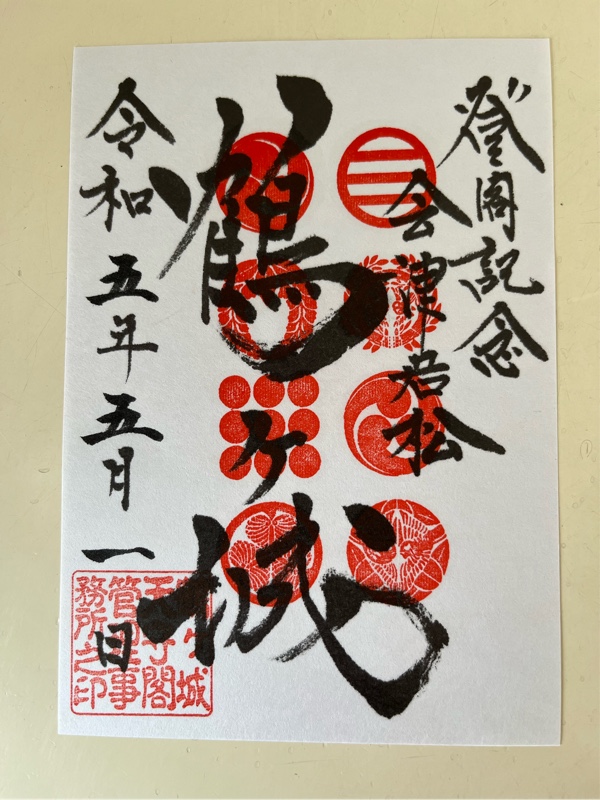 登閣記念
会津若松
鶴ヶ城
令和五年五月一日
鶴ヶ城
天守閣
管理事
務所之印